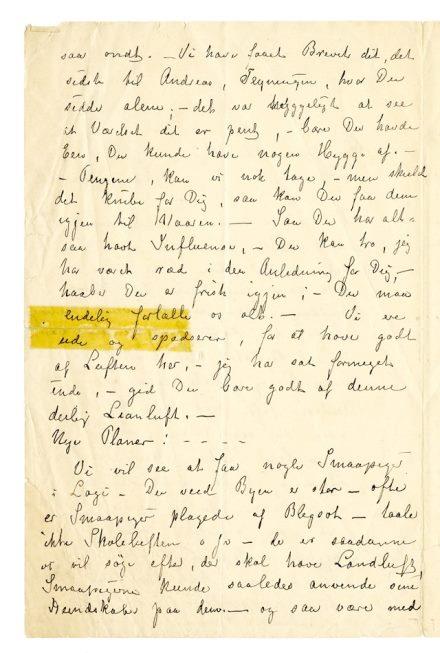 saa ondt. – Vi have faaet Brevet dit, det
sidste til Andreas, Tegningen, hvor Du
sidder alene; – det var hyggeligt at see
at Værelset dit er pent, – bare Du havde
Een, Du kunde have nogen Hygge af. –
– Pengene, kan vi nok tage, – men skuld
det knibe for Dig, saa kan Du faa dem
igjen til Vaaren. – Saa Du har alt-
saa havt Influensa, – Du kan tro, jeg
har været ræd i den Anledning for Dig, –
haaber Du er frisk igjen; – Du maa
endelig fortælle os alt. – Vi ere
ude og spadserer, for at have godt
af Luften her, – jeg har sat formeget
inde, – gid Du bare godt af denne
deilig Leanluft. –
Nye Planer: - - - -
Vi vil see at faa nogle Smaapiger
i Logi – Du veed Byen er stor – ofte
er Smaapiger plagede af Blegsot – taale
ikke Skoleluften o s v – de er saadanne
vi vil söge efter, der skal have Landluft,
Smaapigerne kunde saaledes anvende sine
Kundskaber paa dem. – og saa være med